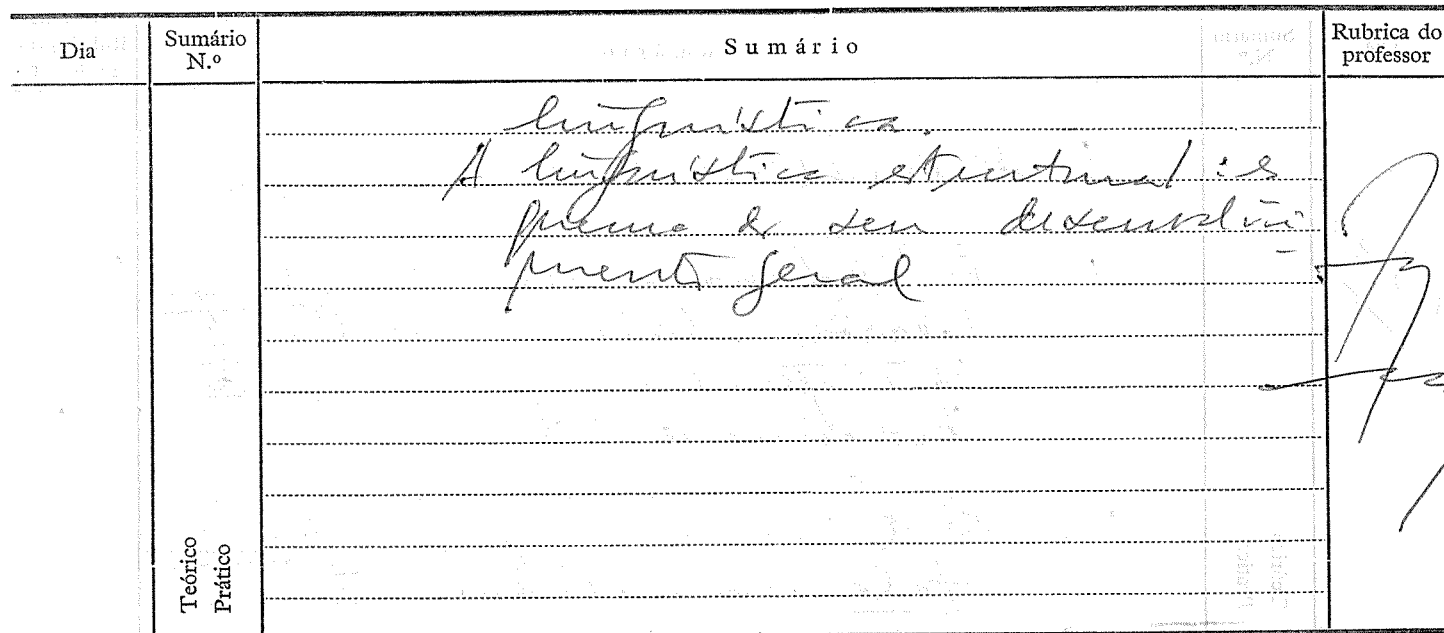 Dia
Sumário N.º
Sumário
Rubrica do professor
linguística.
A linguística estrutural: es
quema do seu desenvolvi
mento geral
Teórico
Prático